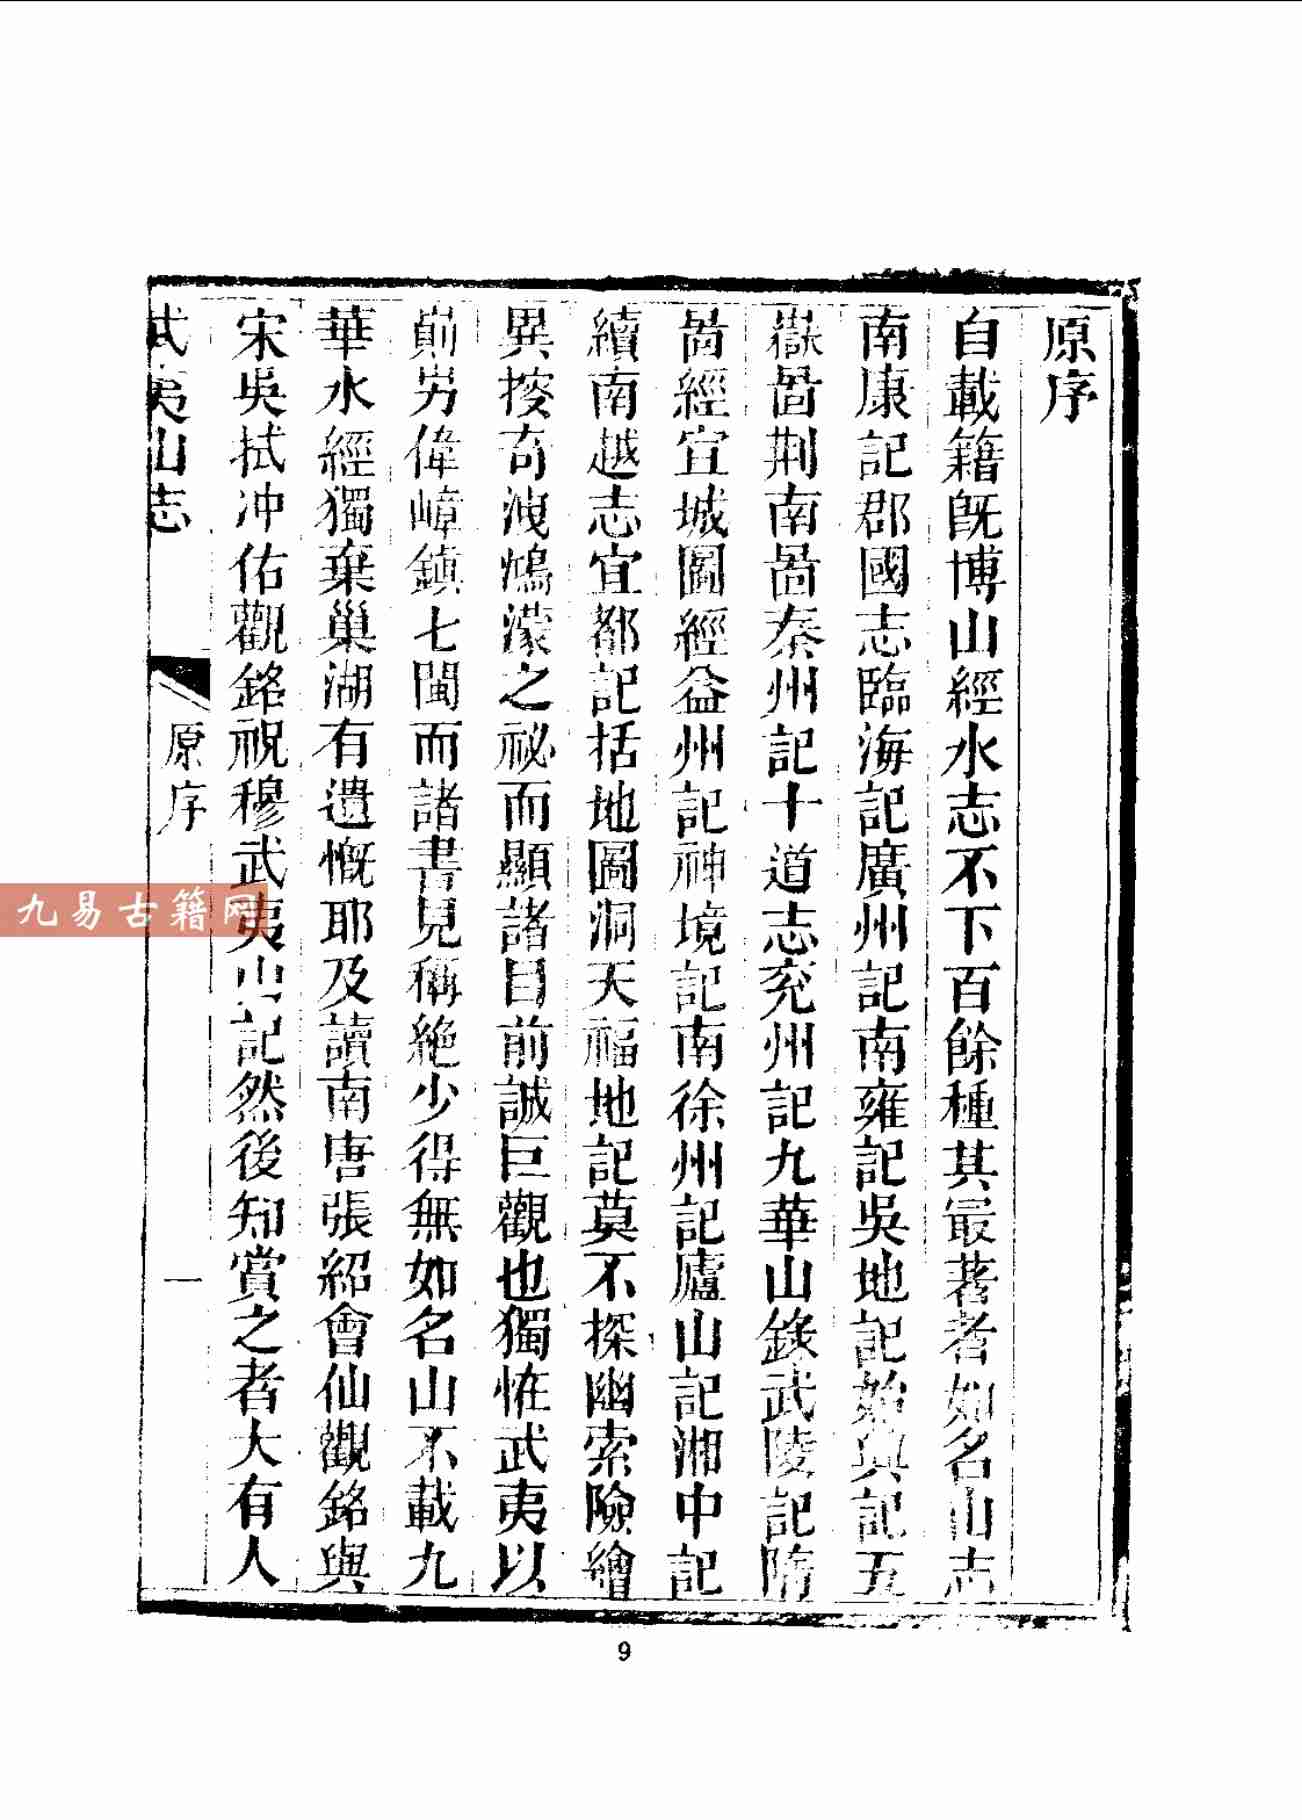 原序
自載籍旣博山經水志不下百餘種其最著者如名山志
南康記郡國志臨海記廣州記南雍記吳地記始興記五
嶽啚荆南啚秦州記十道志兖州記九華山錄武陵記隋
啚經宜城圖經益州記神境記南徐州記廬山記湘中記
續南越志宜都記括地圖洞天福地記莫不探幽索險繪
異搜奇洩鴻濛之祕而顯諸目前誠巨觀也獨怪武夷以
峛屴偉嶂鎮七閩而諸書見稱絶少得無如名山不載九
華水經獨棄巢湖有遺慨耶及讀南唐張紹會仙觀銘與
宋吳拭冲佑觀銘祝穆武夷山記然後知賞之者大有人
武夷山志
原序
一
九易古籍网
9